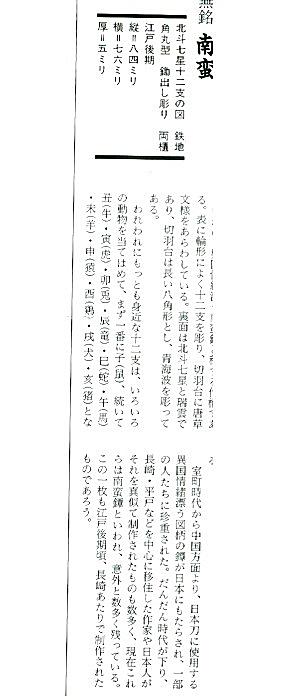 無銘 南蛮
北斗七星十二支の図 鉄地
角丸型 鋤出し彫り 両櫃
江戸後期
縦＝八四ミリ
横＝七六ミリ
厚＝五ミリ
る。表に輪形によく十二支を彫り、切羽台に唐草
文様をあらわしている。裏面は北斗七星と瑞雲で
あり、切羽台は長い八角形とし、青海波を彫って
ある。
われわれにもっとも身近な十二支は、いろいろ
の動物を当てはめて、まず一番に子(鼠)、続いて
丑(牛)・寅(虎)・卯(兎)・辰(竜)・巳(蛇)・午(馬)
・未(羊)・申(猿)・酉(鶏)・戌(犬)・亥(猪)とな
る
室町時代から中国方面より、日本刀に使用する
異国情緒漂う図柄の鐔が日本にもたらされ、一部
の人たちに珍重された。だんだん時代が下り、
長崎・平戸などを中心に移住した作家や日本人が
それを真似て制作されたものも多く、現在これ
らは南蛮鐔といわれ、意外と数多く残っている。
この一枚も江戸後期頃、長崎あたりで制作された
ものであろう。